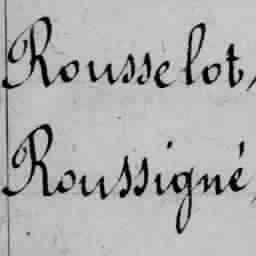 Rousselot,
Roussigné,